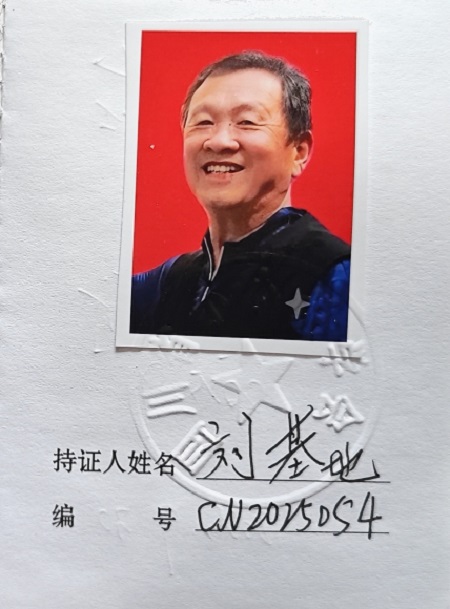 持证人姓名 刘基地
编 号 CN2025DS4